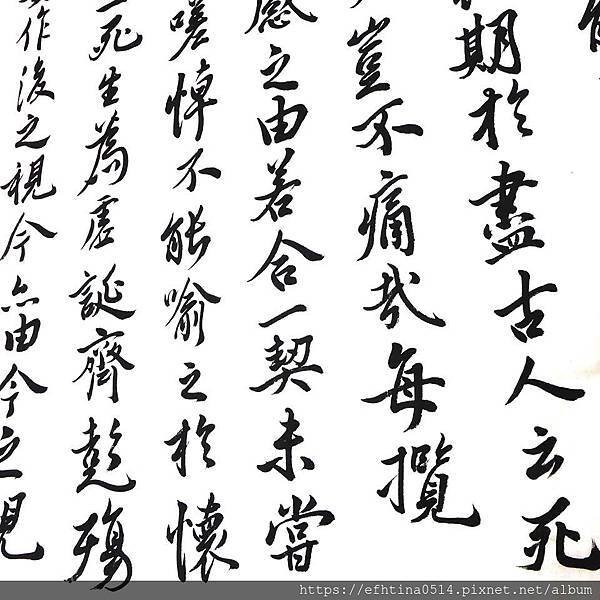 期於盡古人云死
豈不痛哉每攬
感之由若合一契未嘗
嗟悼不能喻之於懷
死生為虛誕齊彭殤
作後之視今亦由今之視
https://efhtina0514.pixnet.net/album